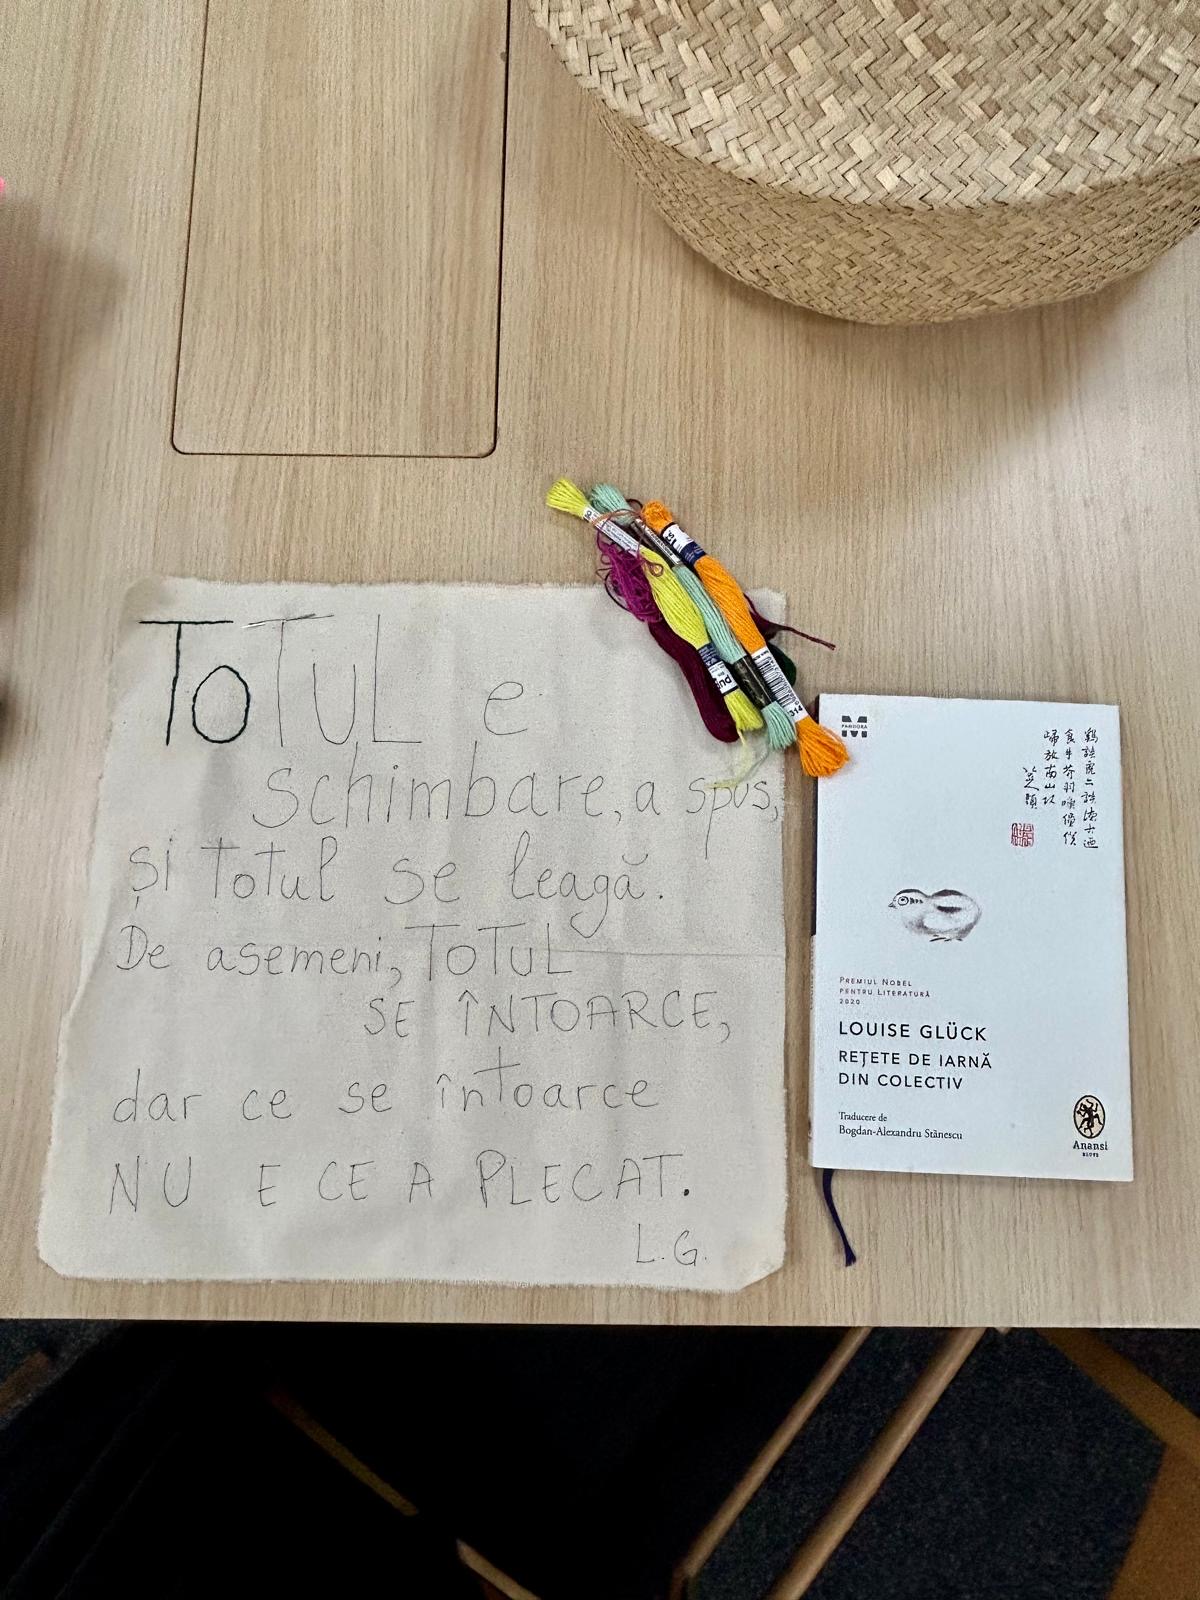 TOTUL e
schimbare, a spus,
și totul se leagă.
De asemeni, TOTUL
SE ÎNTOARCE,
dar ce se întoarce
NU E CE A PLECAT.
L.G.
314
PANDORA M
PREMIUL NOBEL
PENTRU LITERATURĂ
2020
LOUISE GLÜCK
REȚETE DE IARNĂ
DIN COLECTIV
Traducere de
Bogdan-Alexandru Stănescu
Anansi
BLUES